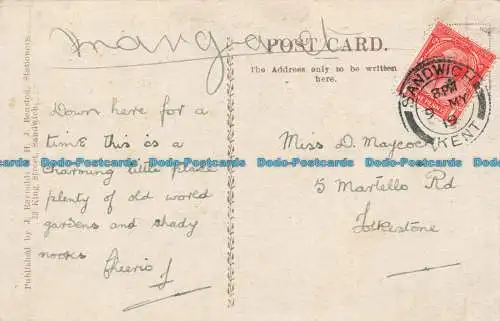 margaret
POST CARD.
The Address only to be written
here.
SANDWICH
8 PM
9 MY
19
KENT
Down here for a
time this is a
charming little place
plenty of old world
gardens and shady
nooks
Cheerio J
Miss D. Maycock
5 Martello Rd
Folkestone
Published by J. Reynolds & H. J. Bensted, Stationers,
13 King Street, Sandwich.
Dodo-Postcards Dodo-Postcards Dodo-Postcards Dodo-Postcards